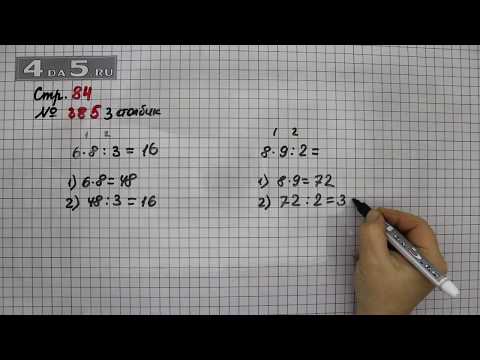 4 DA 5.RU
Стр. 84
№ 385 3 столбик
1 2
6·8:3=16
1) 6·8=48
2) 48:3=16
1 2
8·9:2=
1) 8·9=72
2) 72:2=3